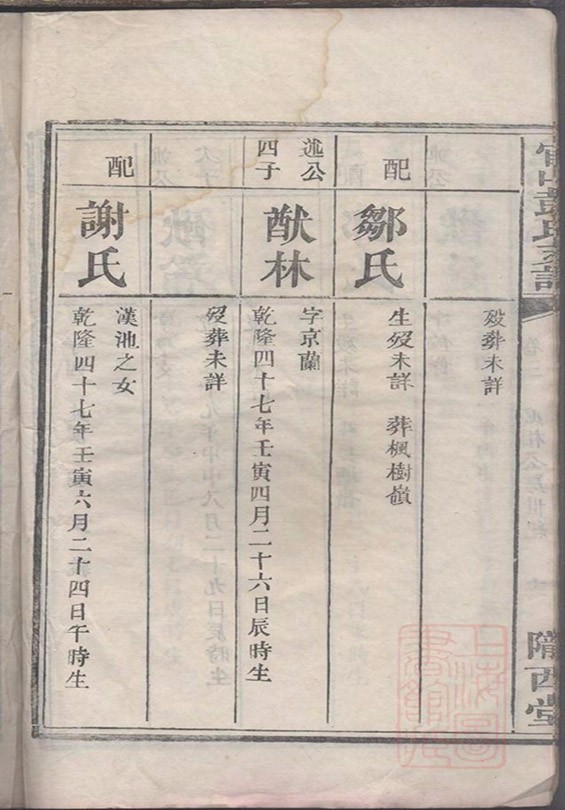 隴西堂
歿葬未詳
配
鄒氏
生歿未詳 葬楓樹嶺
述公
四子
猷林
字京蘭
乾隆四十七年壬寅四月二十六日辰時生
歿葬未詳
配
謝氏
漢池之女
乾隆四十七年壬寅六月二十四日午時生